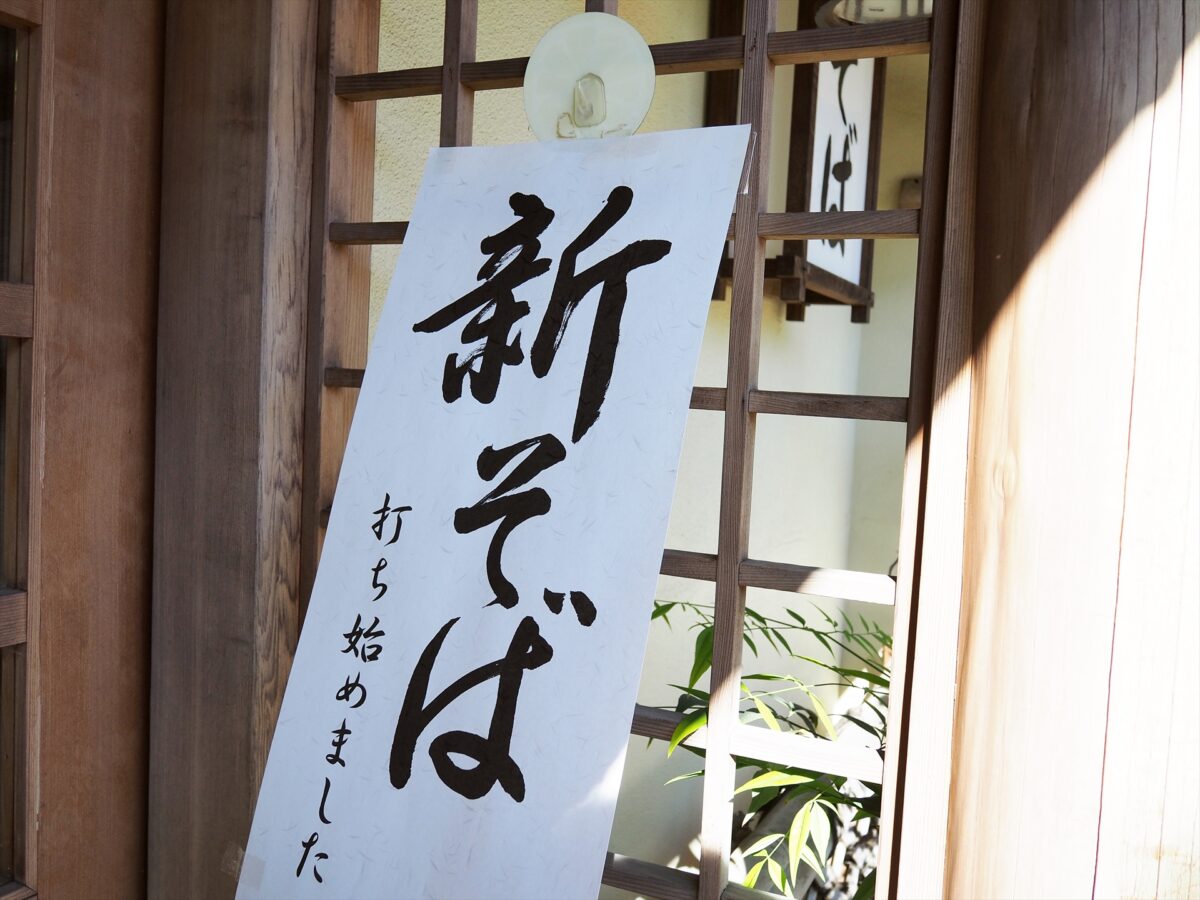 新そば
打ち始めました
そば